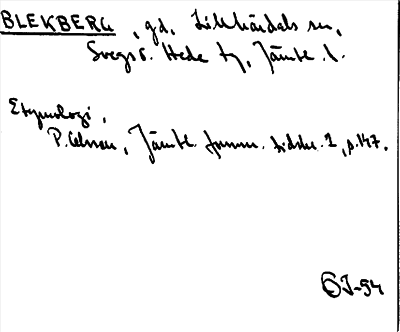 BLEKBERG, gd, Lillhärdals sn,
Svegs o. Hede tg, Jämtl. l.
Etymologi,
P. Olsson, Jämtl. fornm. tidskr. 1, p. 147.
ÖJ-54